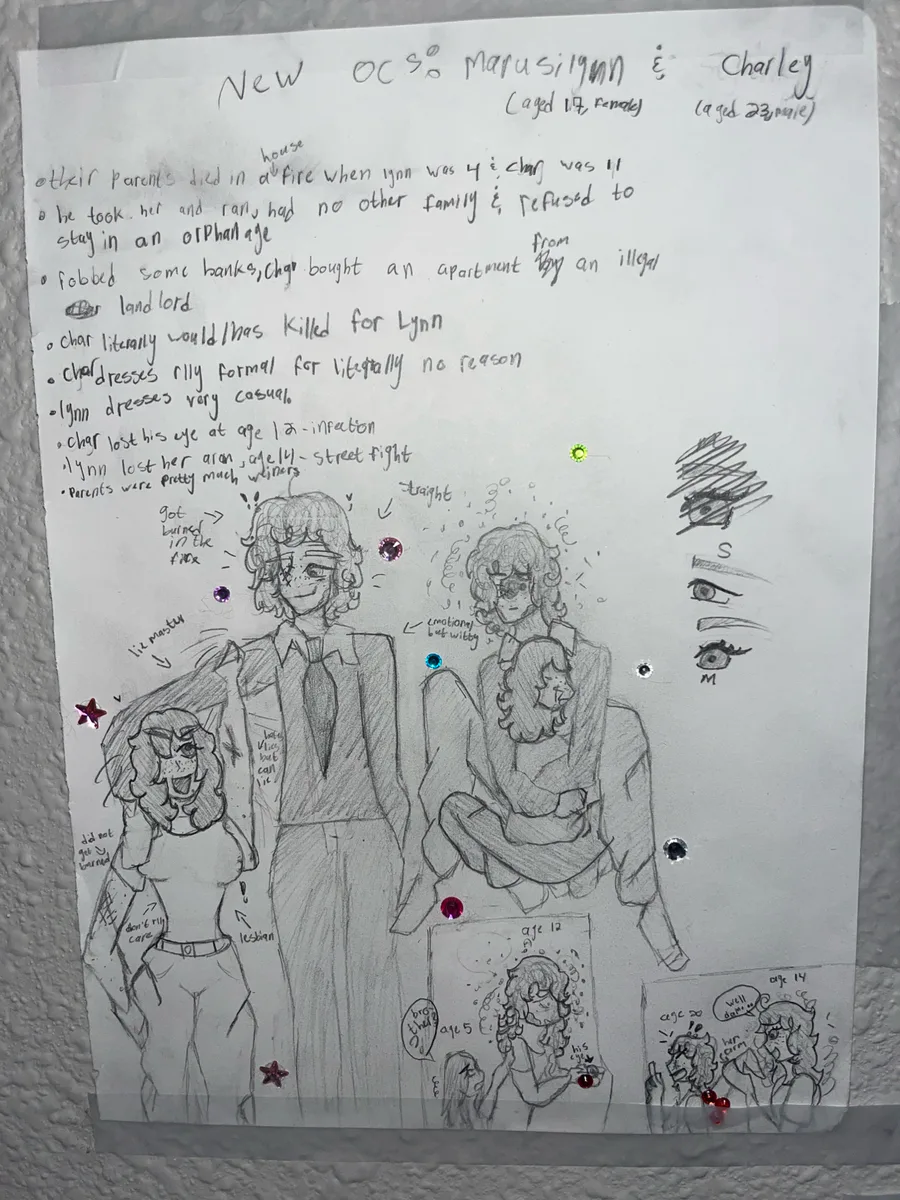 New OCs: Marusilynn & Charley
(aged 17, female) (aged 23, male)
• their parents died in a house fire when lynn was 4 & char was 11
• he took her and ran, had no other family & refused to
stay in an orphanage
• robbed some banks, char bought an apartment from an illegal
landlord
• char literally would/has killed for Lynn
• char dresses rlly formal for literally no reason
• lynn dresses very casual
• char lost his eye at age 12 - infection
• lynn lost her arm, age 14 - street fight
• parents were pretty much weiners
got
burned
in the
fire
straight
emotional
but witty
lie master
hates
lies,
but
can
lie
did not
get
burned
don't rlly
care
lesbian
S
M
age 12
age 5
his
eye
age 14
age 20
well
damn
her
arm